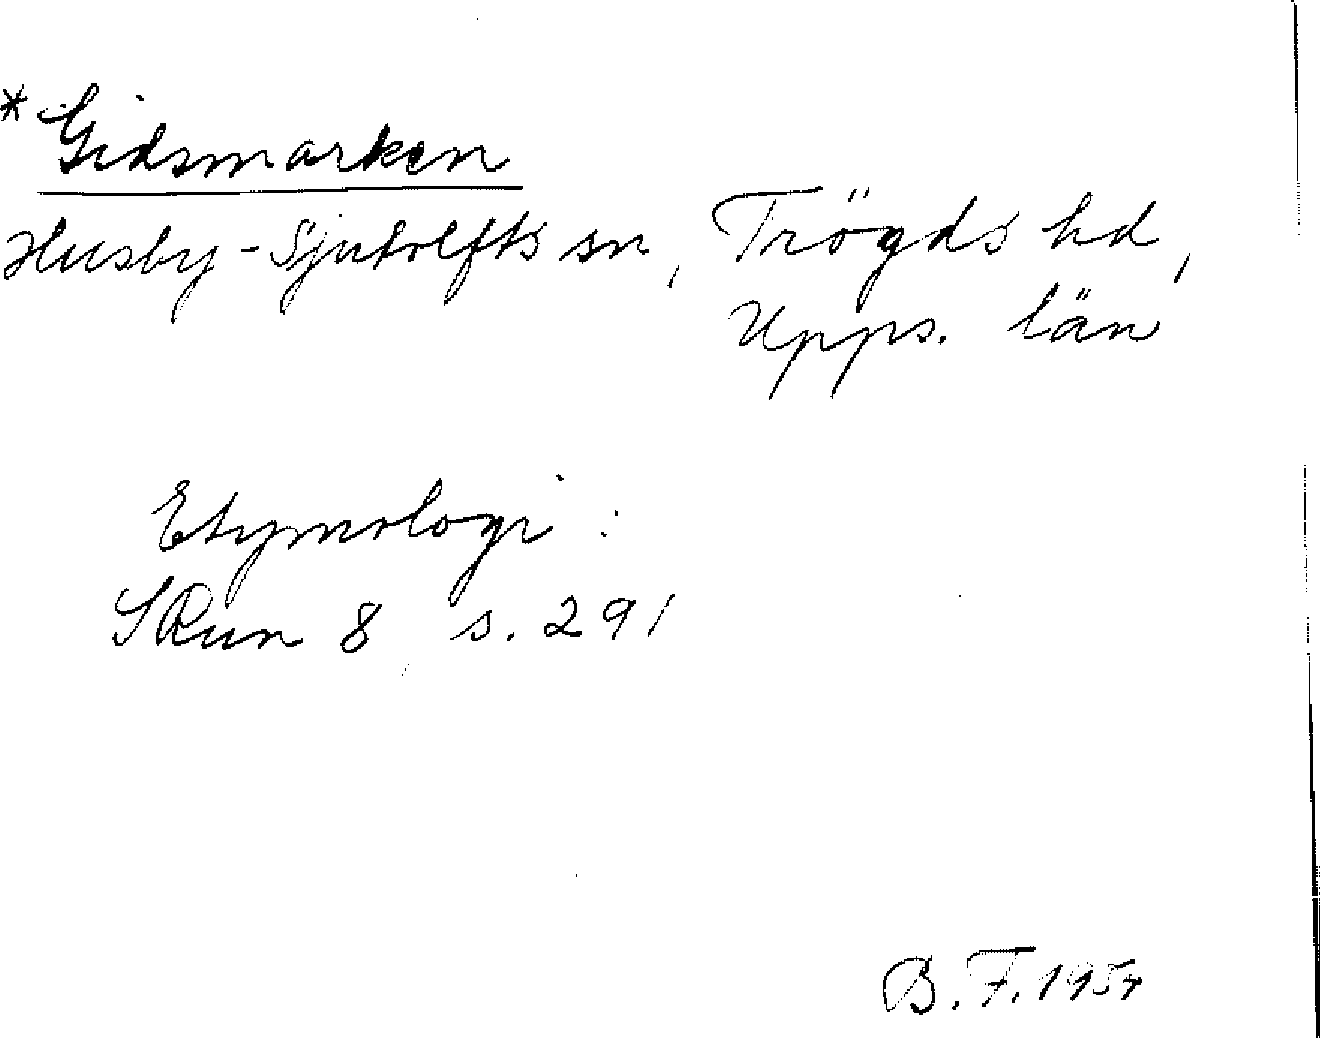 *Gidsmarken
Husby-Sjutolfts sn, Trögds hd,
Upps. län
Etymologi:
SRun 8, s. 291
B. F. 1954